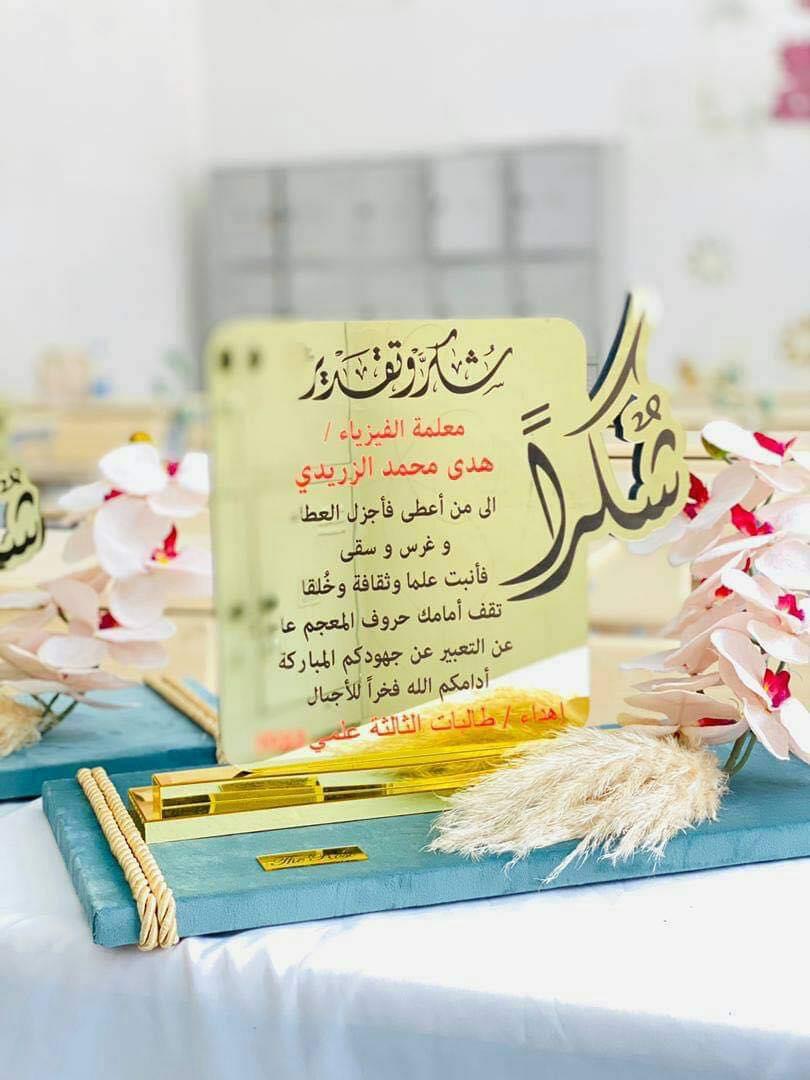 شكر وتقدير
معلمة الفيزياء /
هدى محمد الزريدي
الى من أعطى فأجزل العطا
و غرس و سقى
فأنبت علما وثقافة وخُلقا
تقف أمامك حروف المعجم عا
عن التعبير عن جهودكم المباركة
أدامكم الله فخراً للأجيال
اهداء / طالبات الثالثة علمي
شُكراً
The Rose